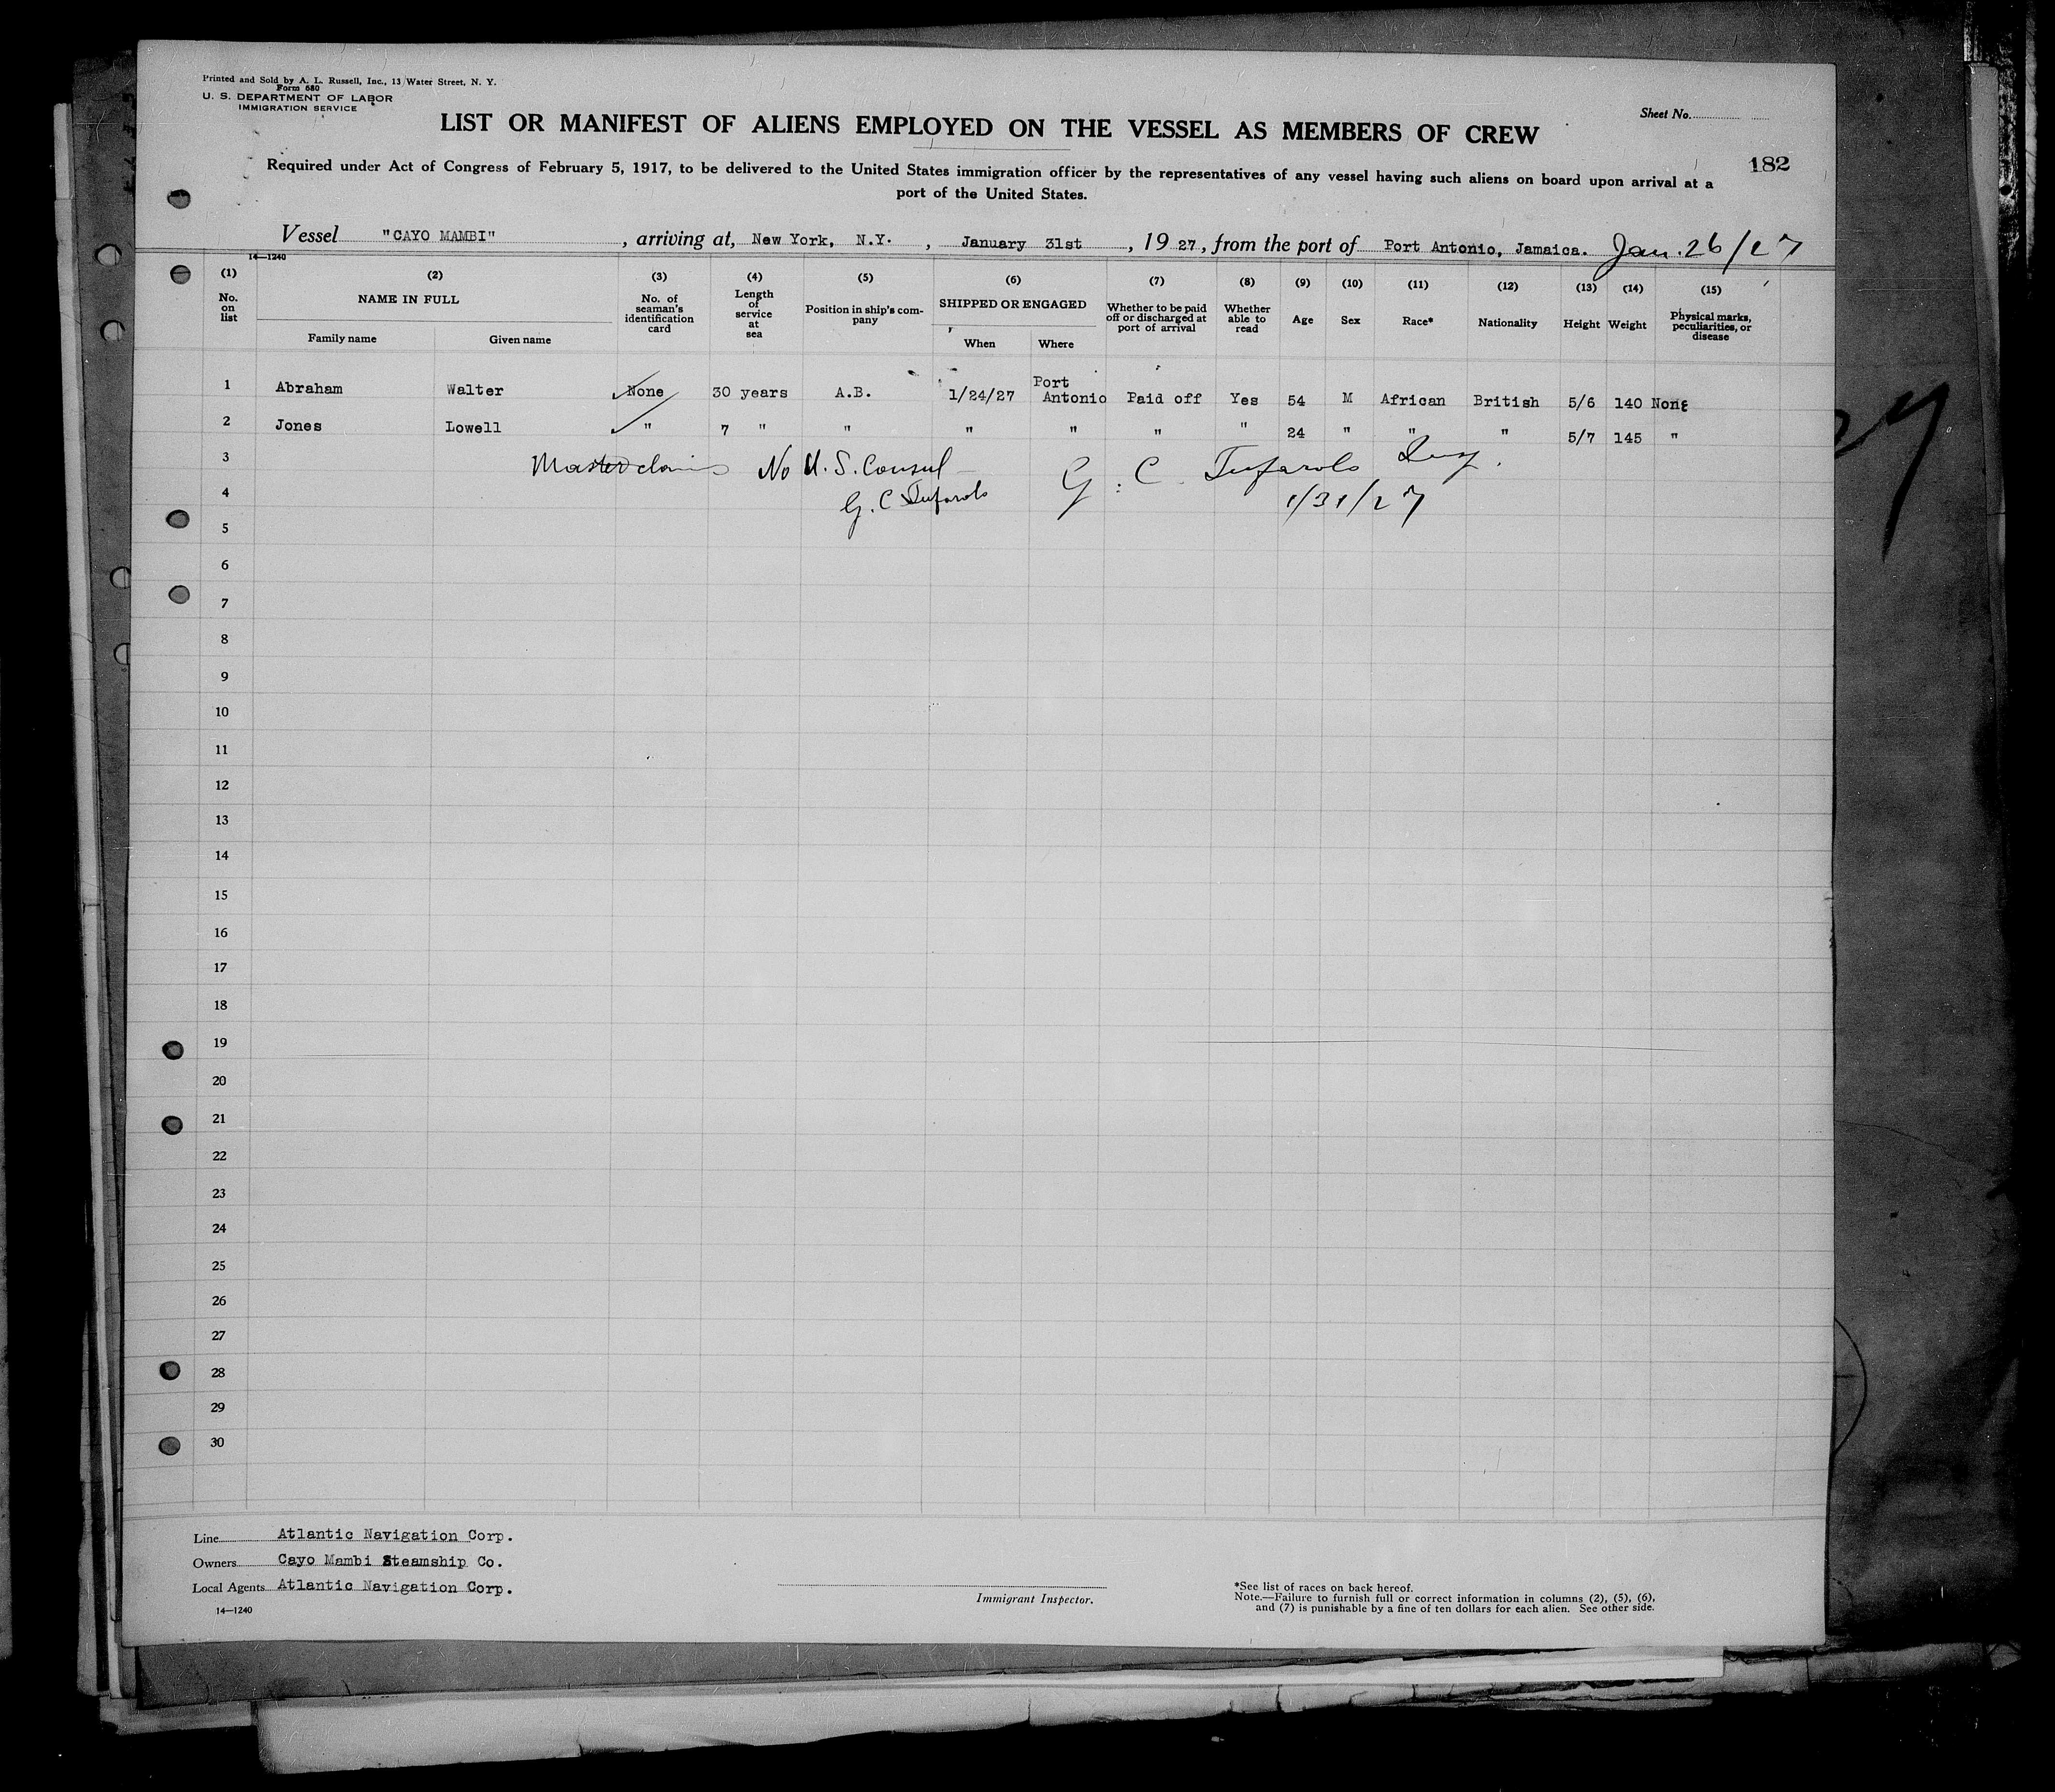 Printed and Sold by A. L. Russell, Inc., 13 Water Street, N. Y.
Form 680
U. S. DEPARTMENT OF LABOR
IMMIGRATION SERVICE
Sheet No.
LIST OR MANIFEST OF ALIENS EMPLOYED ON THE VESSEL AS MEMBERS OF CREW
182
Required under Act of Congress of February 5, 1917, to be delivered to the United States immigration officer by the representatives of any vessel having such aliens on board upon arrival at a
port of the United States.
Vessel "CAYO MAMBI" , arriving at, New York, N.Y. , January 31st , 19 27, from the port of Port Antonio, Jamaica. Jan. 26/27
14—1240
(1) No. on list
(2) NAME IN FULL
Family name Given name
(3) No. of seaman's identification card
(4) Length of service at sea
(5) Position in ship's company
(6) SHIPPED OR ENGAGED
When Where
(7) Whether to be paid off or discharged at port of arrival
(8) Whether able to read
(9) Age
(10) Sex
(11) Race*
(12) Nationality
(13) Height
(14) Weight
(15) Physical marks, peculiarities, or disease
1 Abraham Walter None 30 years A.B. 1/24/27 Port Antonio Paid off Yes 54 M African British 5/6 140 None
2 Jones Lowell " 7 " " " " " " 24 " " " 5/7 145 "
3 Master claims No U.S. Consul G. C.
4 G. C. 1/31/27
5
6
7
8
9
10
11
12
13
14
15
16
17
18
19
20
21
22
23
24
25
26
27
28
29
30
Line Atlantic Navigation Corp.
Owners Cayo Mambi Steamship Co.
Local Agents Atlantic Navigation Corp.
14—1240
Immigrant Inspector.
*See list of races on back hereof.
Note.—Failure to furnish full or correct information in columns (2), (5), (6),
and (7) is punishable by a fine of ten dollars for each alien. See other side.